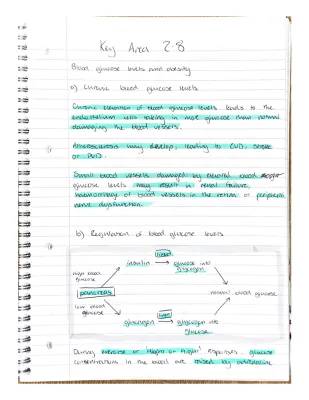 Key Area 2.8
Blood glucose levels and obesity
a) Chronic blood glucose levels
Chronic elevation of blood glucose levels leads to the
endothelium cells taking in more glucose than normal
damaging the blood vessels.
Atherosclerosis may develop, leading to CVD, stroke
or PVD.
Small blood vessels damaged by elevated blood
glucose levels may result in renal failure,
haemorrhage of blood vessels in the retina or peripheral
nerve dysfunction.
b) Regulation of blood glucose levels
liver
insulin glucose into
glycogen
high blood
glucose
pancreas normal blood glucose
low blood
glucose
liver
glucagon glycogen into
glucose
During exercise or 'flight or fight' responses glucose
concentrations in the blood are raised by adrenaline